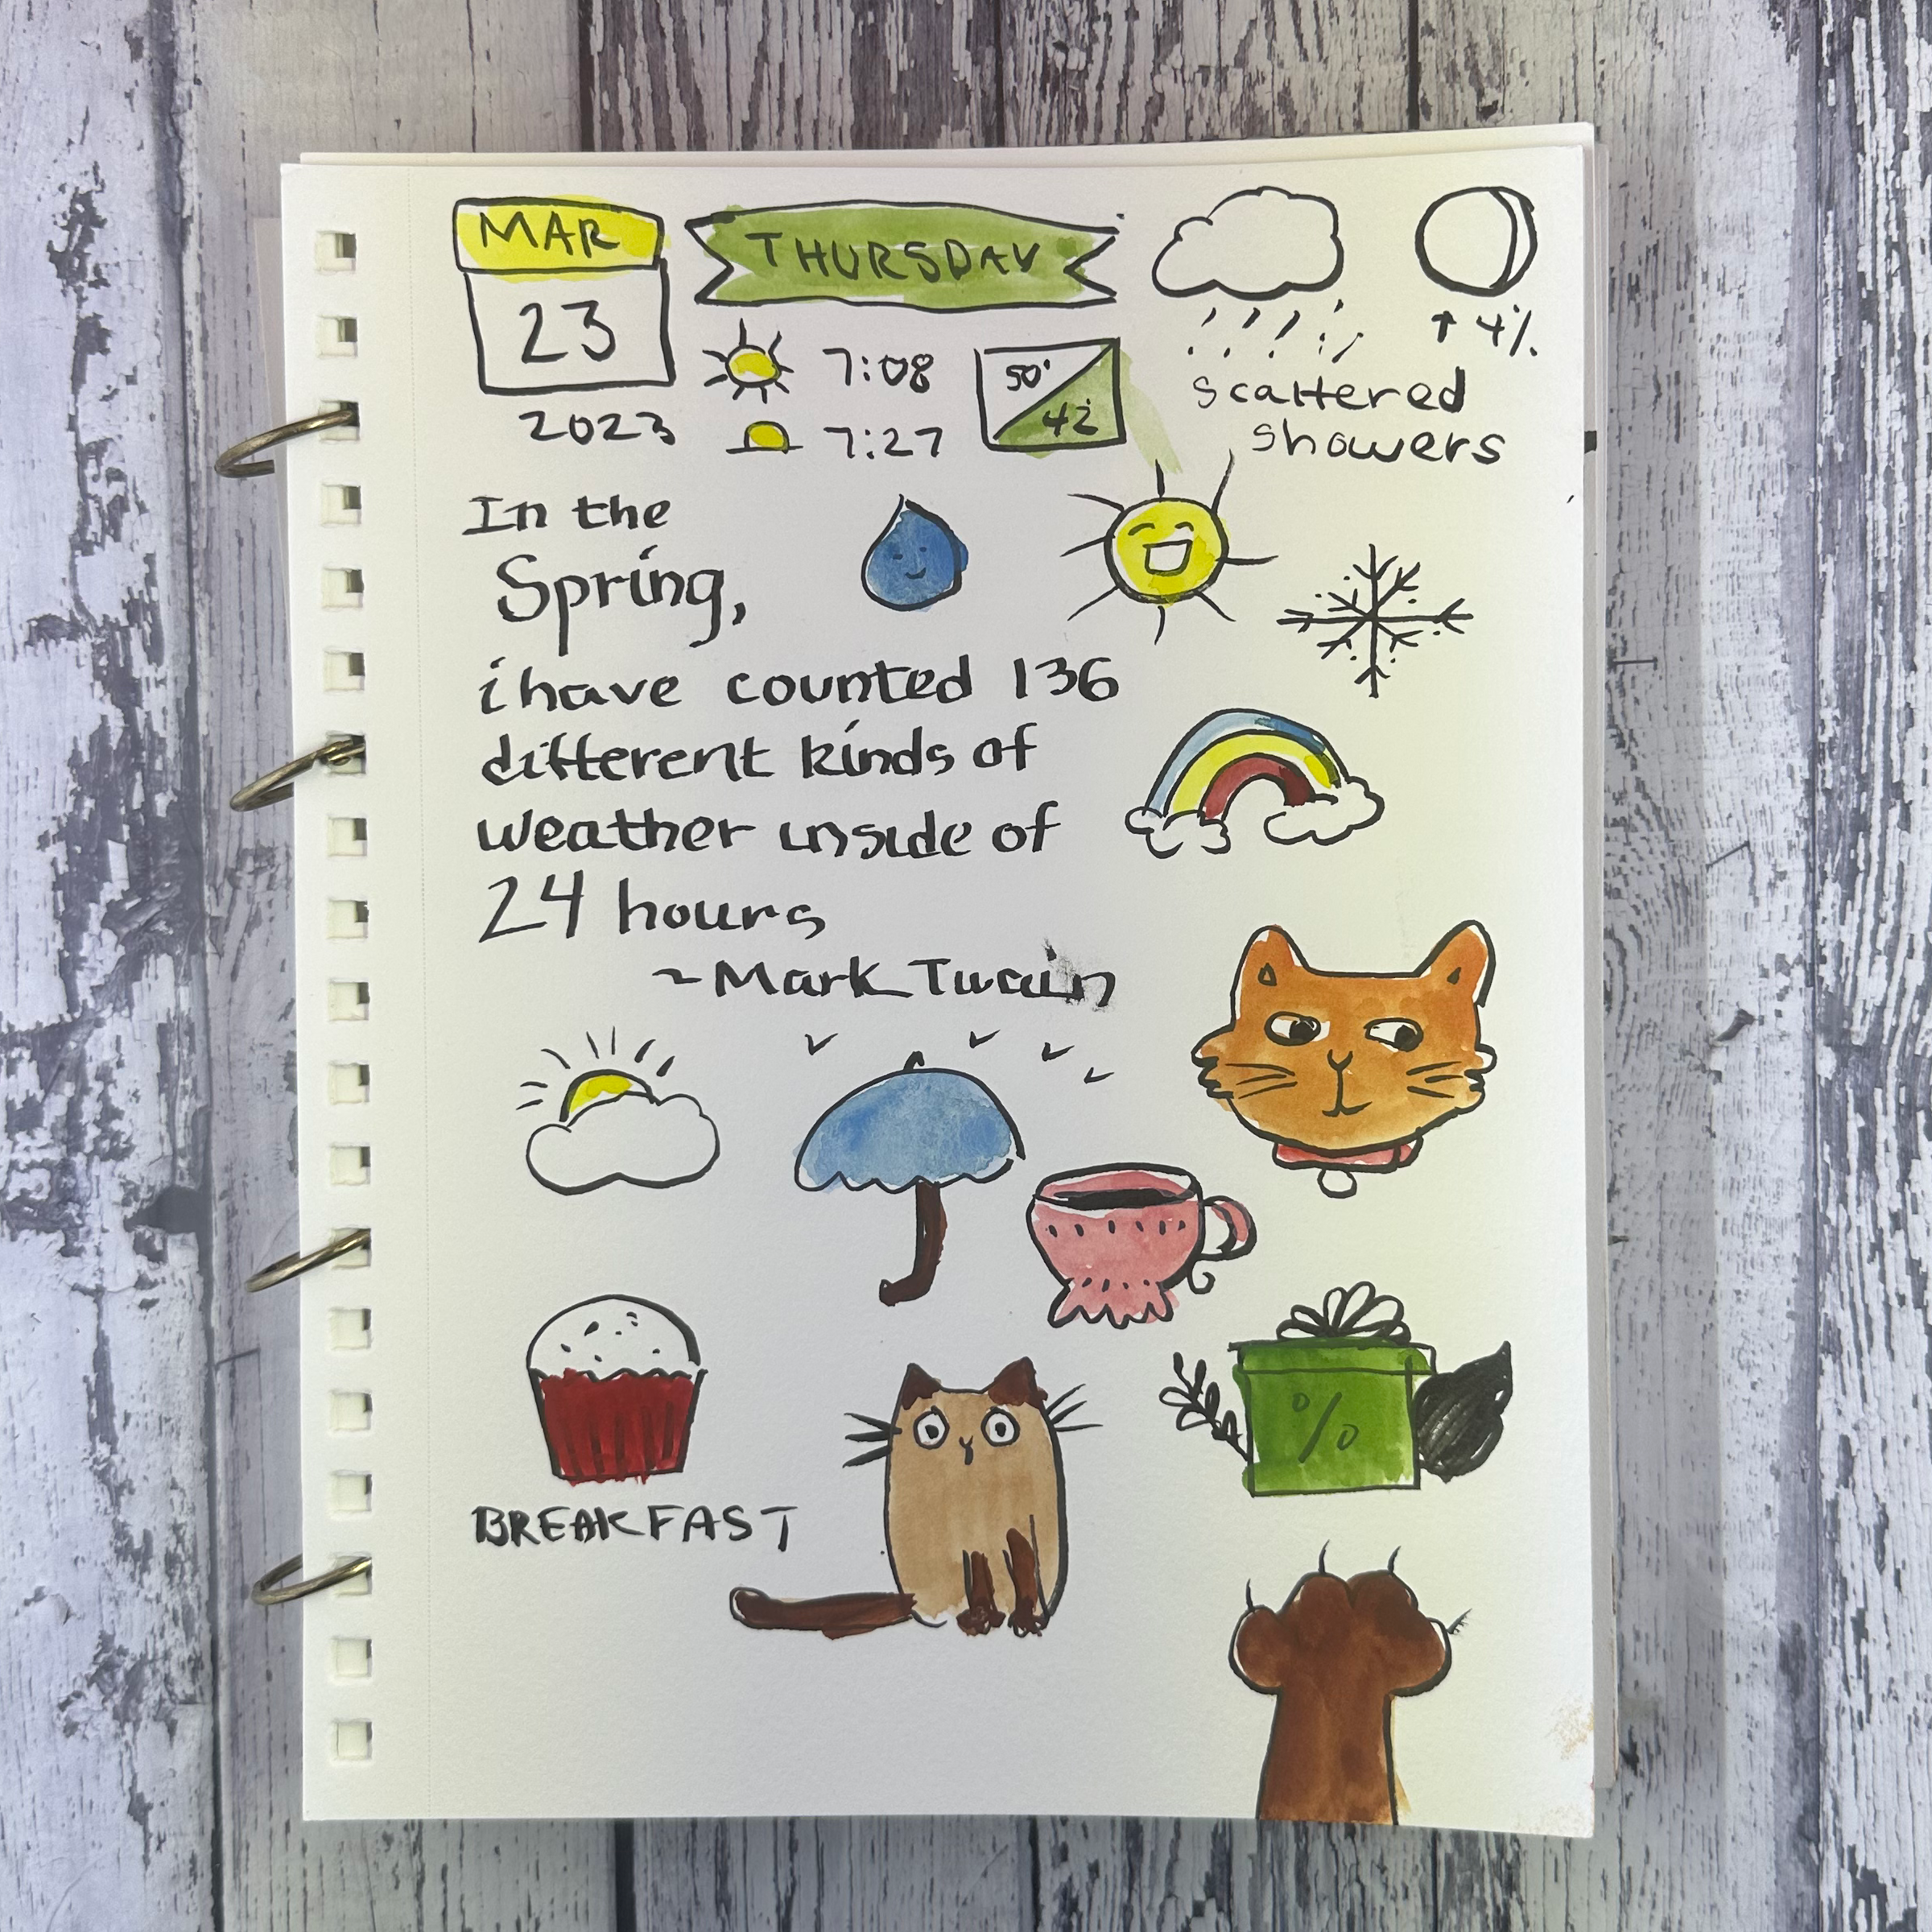 MAR
23
2023
THURSDAY
7:08
7:27
50°
42°
↑ 4%
scattered
showers
In the
Spring,
i have counted 136
different kinds of
weather inside of
24 hours
~Mark Twain
%
BREAKFAST